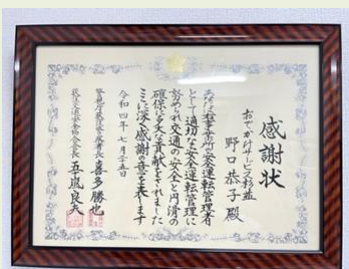 感謝状
おでかけサービス杉並
野口恭子殿
あなたは事業所の安全運転管理者
として適切な安全運転管理に
努められ交通の安全と円滑の
確保に多大な貢献をされました
ここに深く感謝の意を表します
令和四年七月二十五日
警視庁 署長 喜多勝也
会長 五十嵐良夫